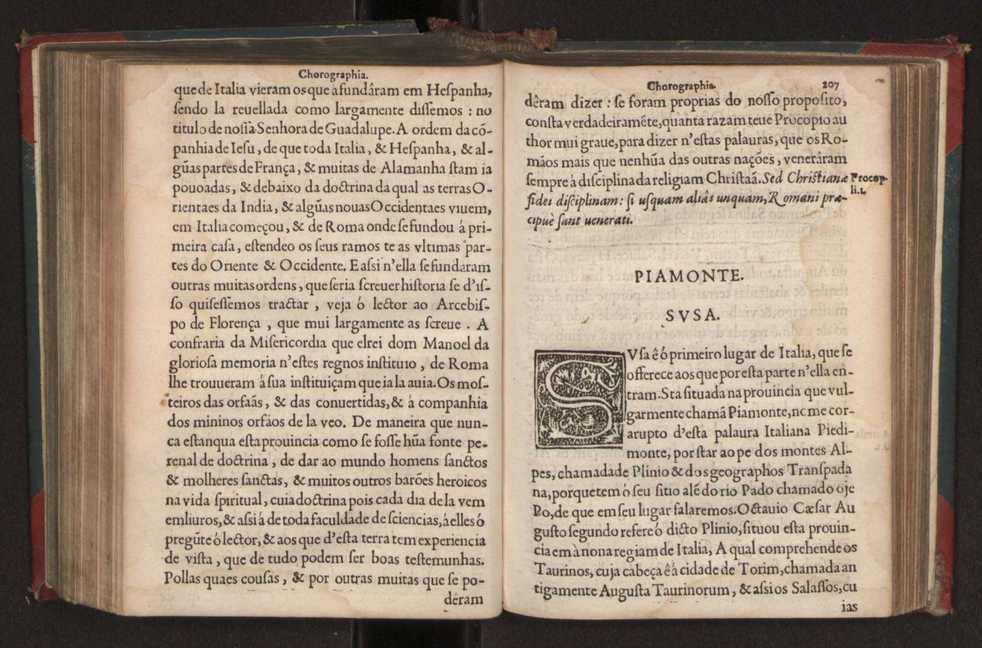 Chorographia.
que de Italia vieram os que a fundâram em Hespanha,
sendo la reuellada como largamente dissemos : no
titulo de nossa Senhora de Guadalupe. A ordem da cõ-
panhia de Iesu, de que toda Italia, & Hespanha, & al-
gũas partes de França, & muitas de Alamanha stam ia
pouoadas, & debaixo da doctrina da qual as terras O-
rientaes da India, & algũas nouas Occidentaes viuem,
em Italia começou, & de Roma onde se fundou á pri-
meira casa, estendeo os seus ramos te as vltimas par-
tes do Oriente & Occidente. E assi n'ella se fundaram
outras muitas ordens, que seria screuer historia se d'is-
so quisessemos tractar , veja ó lector ao Arcebis-
po de Florença , que mui largamente as screue . A
confraria da Misericordia que elrei dom Manoel da
gloriosa memoria n'estes regnos instituio , de Roma
lhe trouueram à sua instituiçam que ia la auia. Os mos-
teiros das orfaãs , & das conuertidas, & à companhia
dos mininos orfãos de la veo. De maneira que nun-
ca estanqua esta prouincia como se fosse hũa fonte pe-
renal de doctrina , de dar ao mundo homens sanctos
& molheres sanctas, & muitos outros barões heroicos
na vida spiritual, cuia doctrina pois cada dia de la vem
em liuros, & assi á de toda faculdade de sciencias, à elles ó
pregũte ó lector, & aos que d'esta terra tem experiencia
de vista , que de tudo podem ser boas testemunhas.
Pollas quaes cousas , & por outras muitas que se po-
dêram
Chorographia. 207
dêram dizer : se foram proprias do nosso proposito,
consta verdadeiramẽte, quanta razam teue Procopio au
thor mui graue, para dizer n'estas palauras, que os Ro-
mãos mais que nenhũa das outras nações , venerâram
sempre à disciplina da religiam Christaã. Sed Christianæ
Procop.
li.1.
fidei disciplinam: si usquam aliâs unquam, Romani præ-
cipuè sunt uenerati.
PIAMONTE.
SVSA.
SVsa ê ó primeiro lugar de Italia, que se
offerece aos que por esta parte n'ella en-
tram. Sta situada na prouincia que vul-
garmente chamã Piamonte, nome cor-
arupto d'esta palaura Italiana Piedi-
monte, por star ao pe dos montes Al-
pes, chamada de Plinio & dos geographos Transpada
na, porque tem ó seu sitio alẽ do rio Pado chamado oje
Po, de que em seu lugar falaremos. Octauio Cæsar Au
gusto segundo refere ó dicto Plinio, situou esta prouin-
cia em à nona regiam de Italia, A qual comprehende os
Taurinos, cuja cabeça ê à cidade de Torim, chamada an
tigamente Augusta Taurinorum, & assi os Salassos, cu
ias